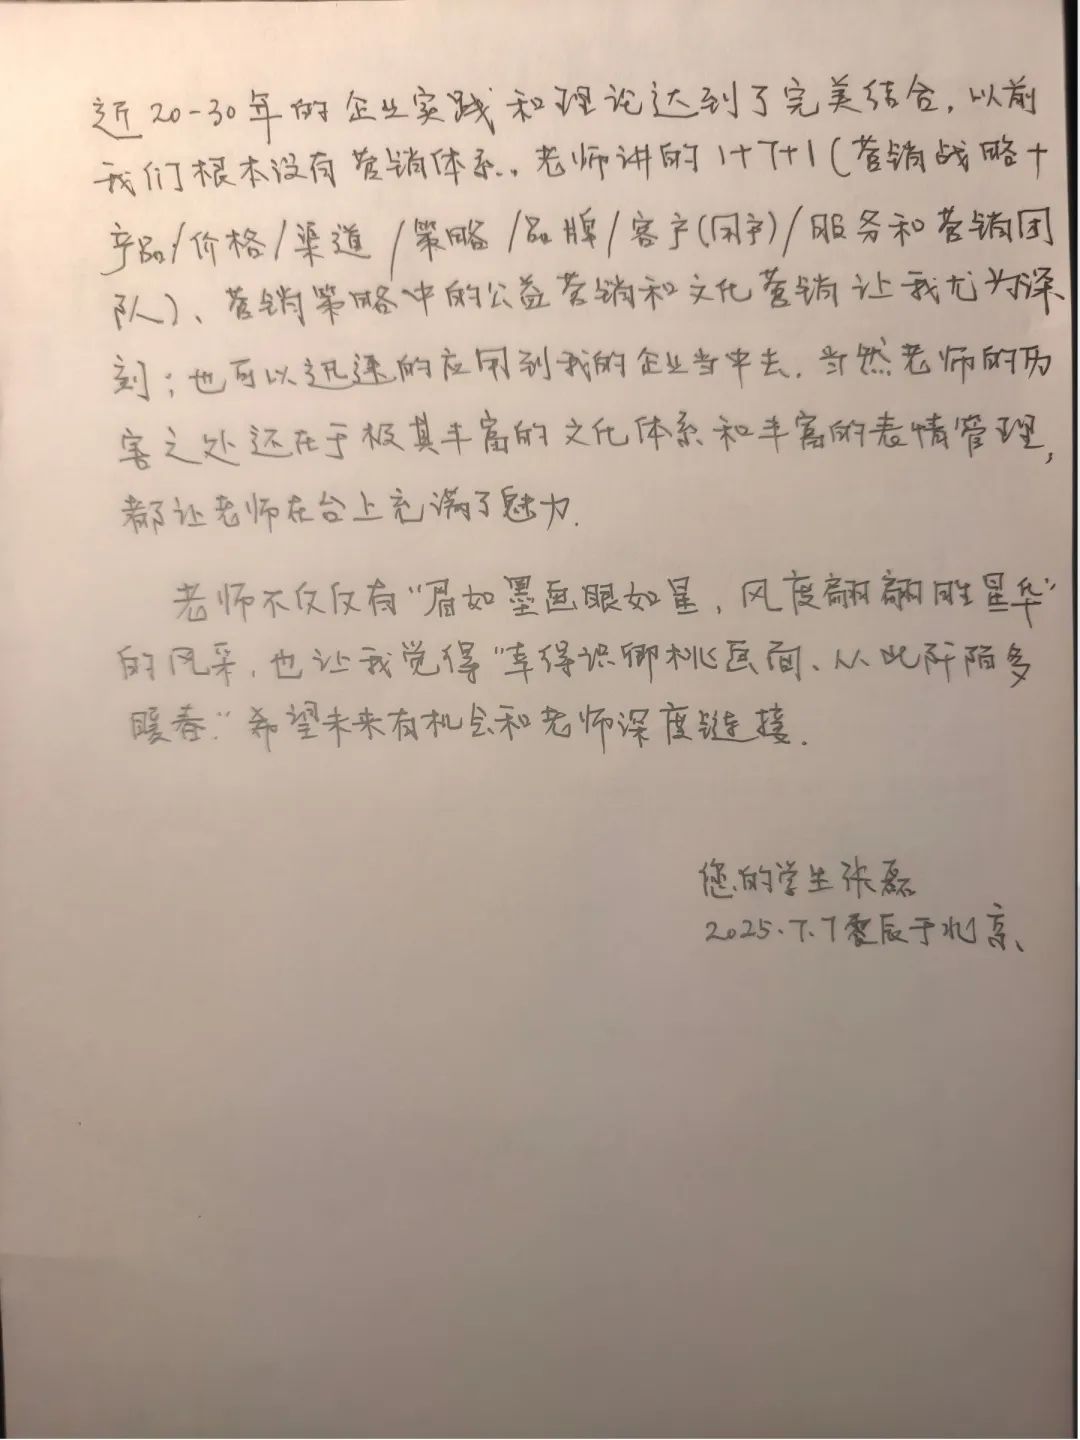 近20-30年的企业实践和理论达到了完美结合，以前
我们根本没有营销体系，老师讲的1+7+1（营销战略+
产品/价格/渠道/策略/品牌/客户(闭户)/服务和营销团
队）、营销策略中的公益营销和文化营销让我尤为深
刻；也可以迅速的应用到我的企业当中去. 当然老师的厉
害之处还在于极其丰富的文化体系和丰富的表情管理，
都让老师在台上充满了魅力.
老师不仅仅有“眉如墨画眼如星，风度翩翩胜星华”
的风采，也让我觉得“幸得识卿桃医面、从此阡陌多
暖春.”希望未来有机会和老师深度链接.
您的学生张磊
2025.7.7 于北京、